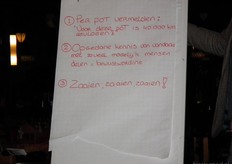 ① Per pot vermelden:
"Voor deze pot is
② Opgedane kennis van vandaag
met zoveel mogelijk mensen
delen =
③ Zaaien, zaaien, zaaien!